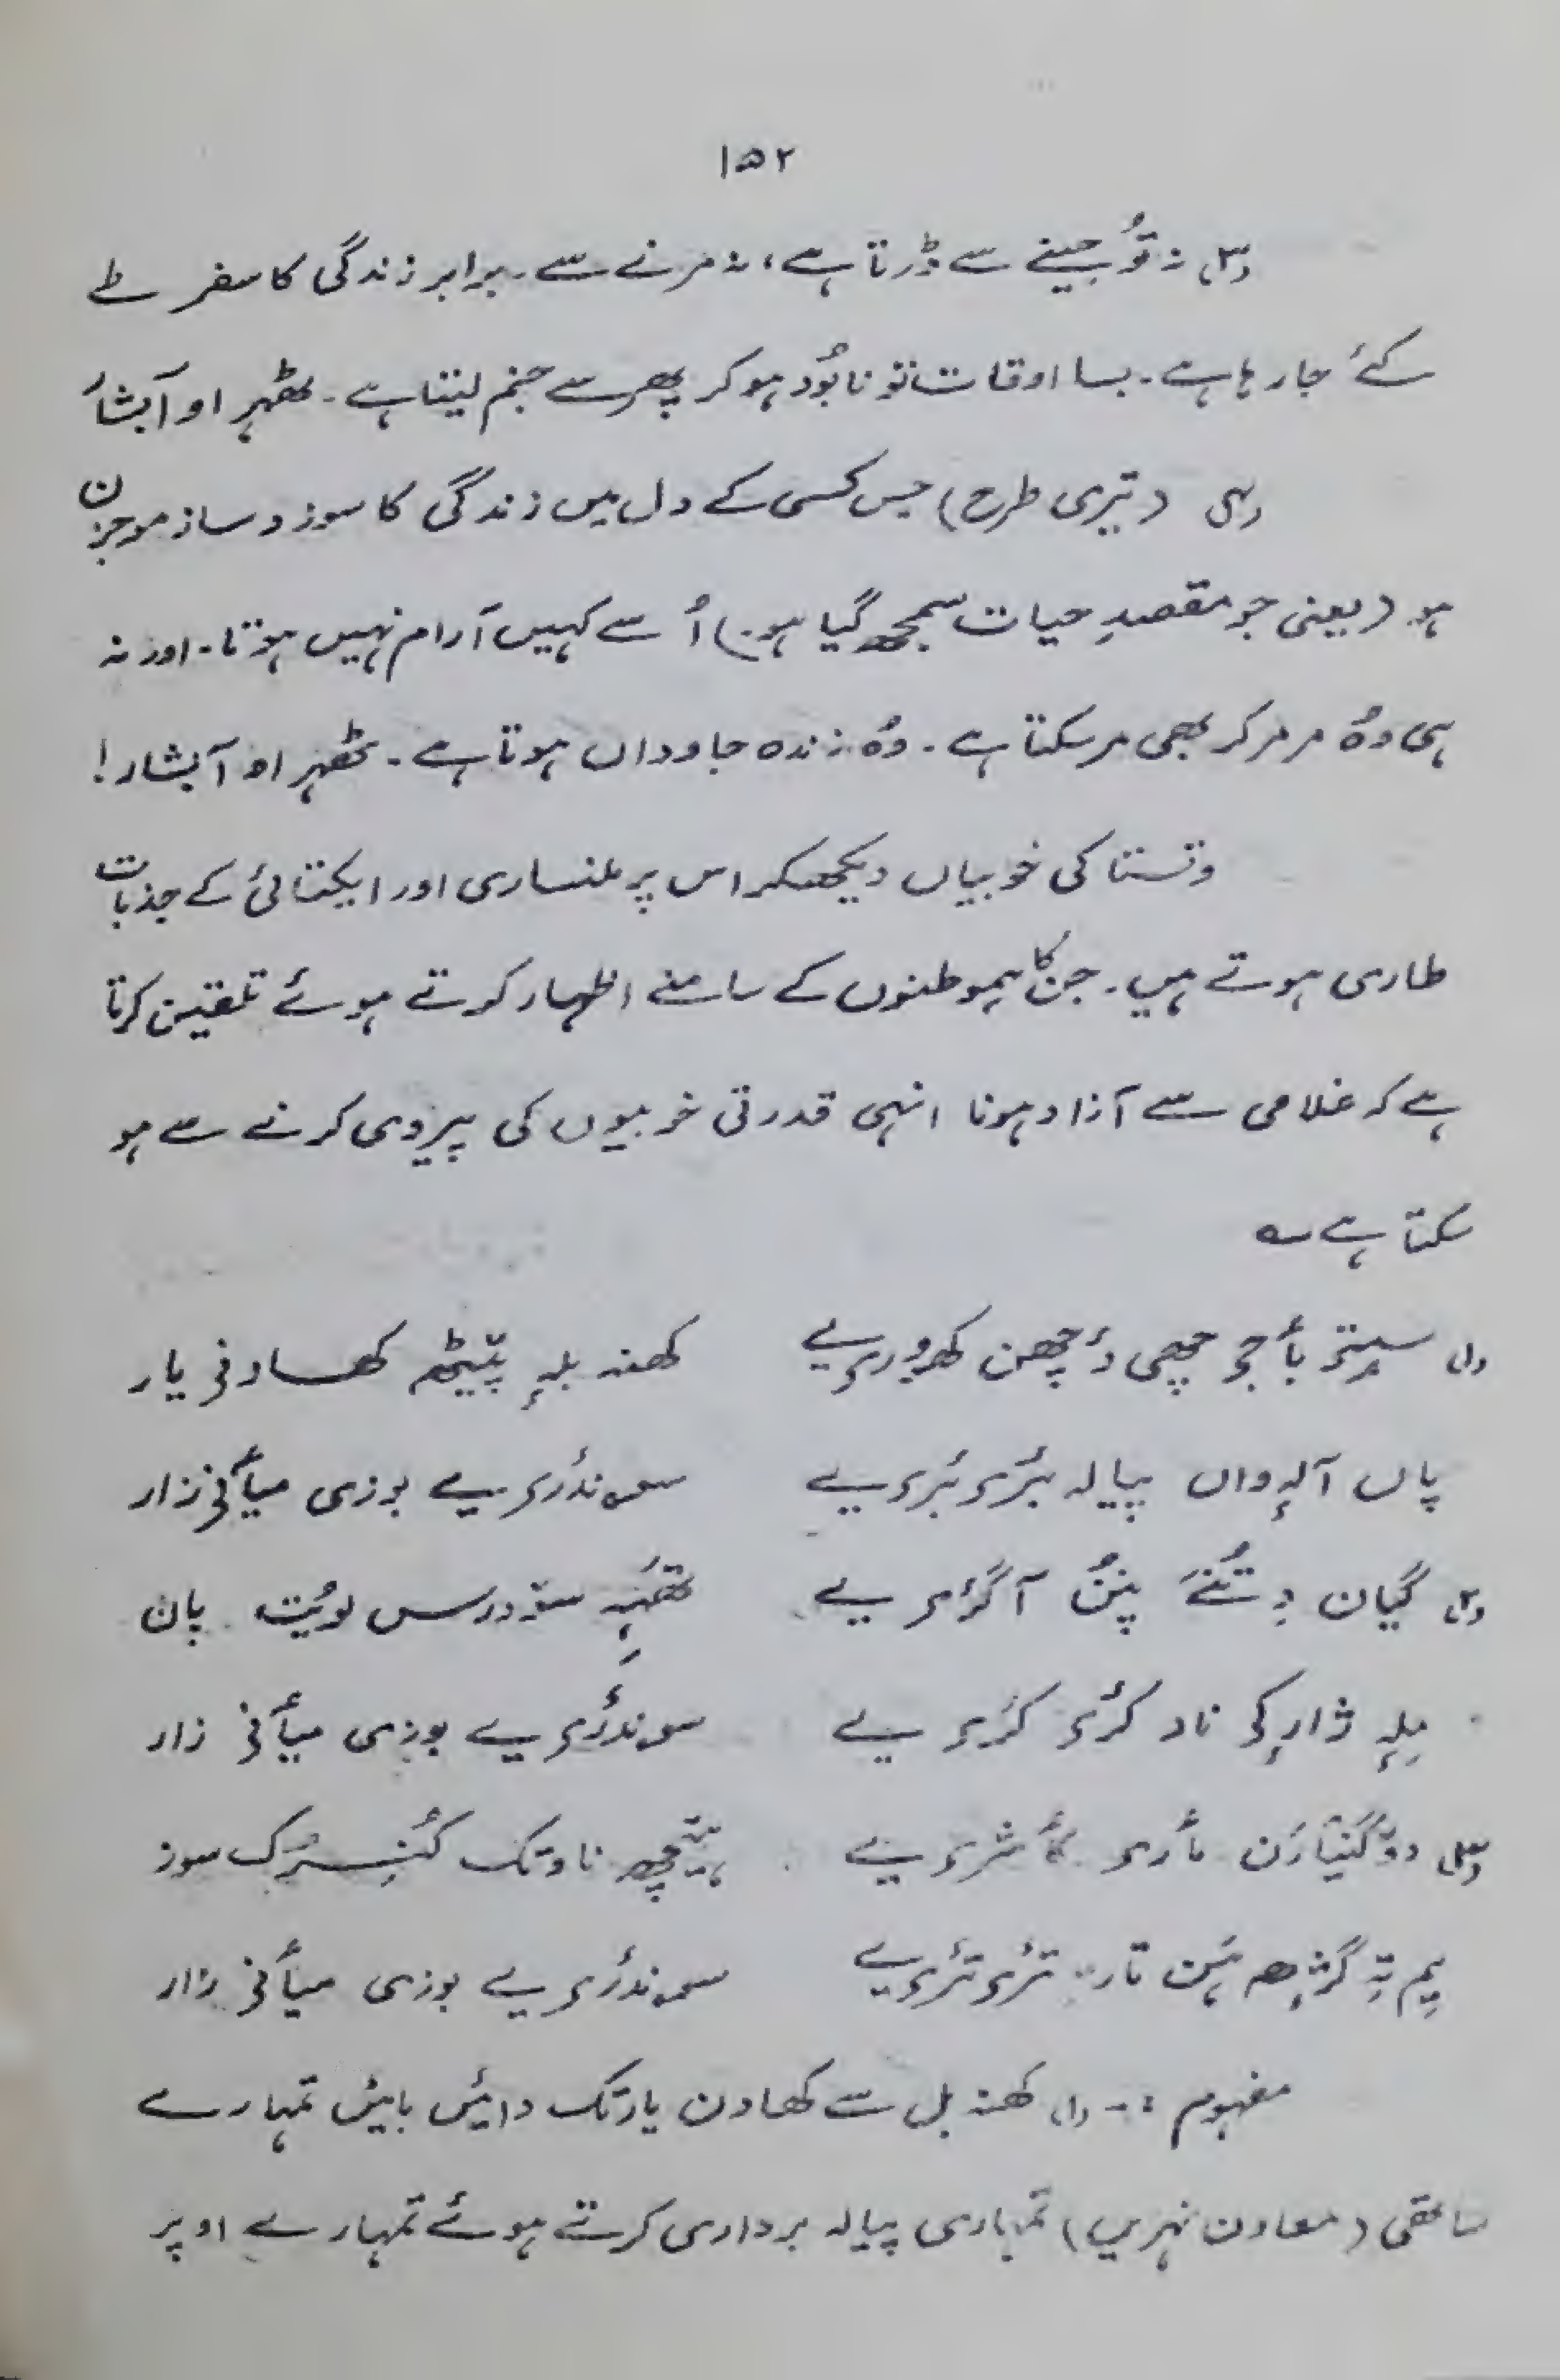 ۱۵۲
(۳) نہ تُو جینے سے ڈرتا ہے، نہ مرنے سے۔ برابر زندگی کا سفر طے
کئے جا رہا ہے۔ بسا اوقات تو نابُود ہو کر پھر سے جنم لیتا ہے۔ ٹھہر او آبشار
(۴) (تیری طرح) جس کسی کے دل میں زندگی کا سوز و ساز موجزن
ہو (یعنی جو مقصدِ حیات سمجھ گیا ہو) اُسے کہیں آرام نہیں ہوتا۔ اور نہ
ہی وُہ مر مر کر بھی مر سکتا ہے۔ وُہ زندہ جاوداں ہوتا ہے۔ ٹھہر او آبشار!
وتستا کی خوبیاں دیکھکر اس پر ملنساری اور ایکتائی کے جذبات
طاری ہوتے ہیں۔ جن کا ہموطنوں کے سامنے اظہار کرتے ہوئے تلقین کرتا
ہے کہ غلامی سے آزاد ہونا انہی قدرتی خوبیوں کی پیروی کرنے سے ہو
سکتا ہے ؎
(۱) بأجو چھی دٔچھن کھۄوریے کھنہ بلہٕ پیٹھہ کھادنی یار
پان آلہٕ وان پیالہ بٔرۍ بٔرۍ یے سوندٔرۍ یے بوزی میأنی زار
(۲) گیان پنُن آگرٔۍ یے سۆدرس پان
میلہٕ ژارکۍ ناد کٔرۍ کٔرۍ یے سوندٔرۍ یے بوزی میأنی زار
(۳) مأرۍ کأشرۍ یے ناوتک سوز
یِم تہِ گژھہن تار تٔرۍ تٔرۍ یے سوندٔرۍ یے بوزی میأنی زار
مفہوم :- (۱) کھنہ بل سے کھادن یار تک دائیں بائیں تمہارے
ساتھی (معاون نہریں) تمہاری پیالہ برداری کرتے ہوئے تمہارے اوپر